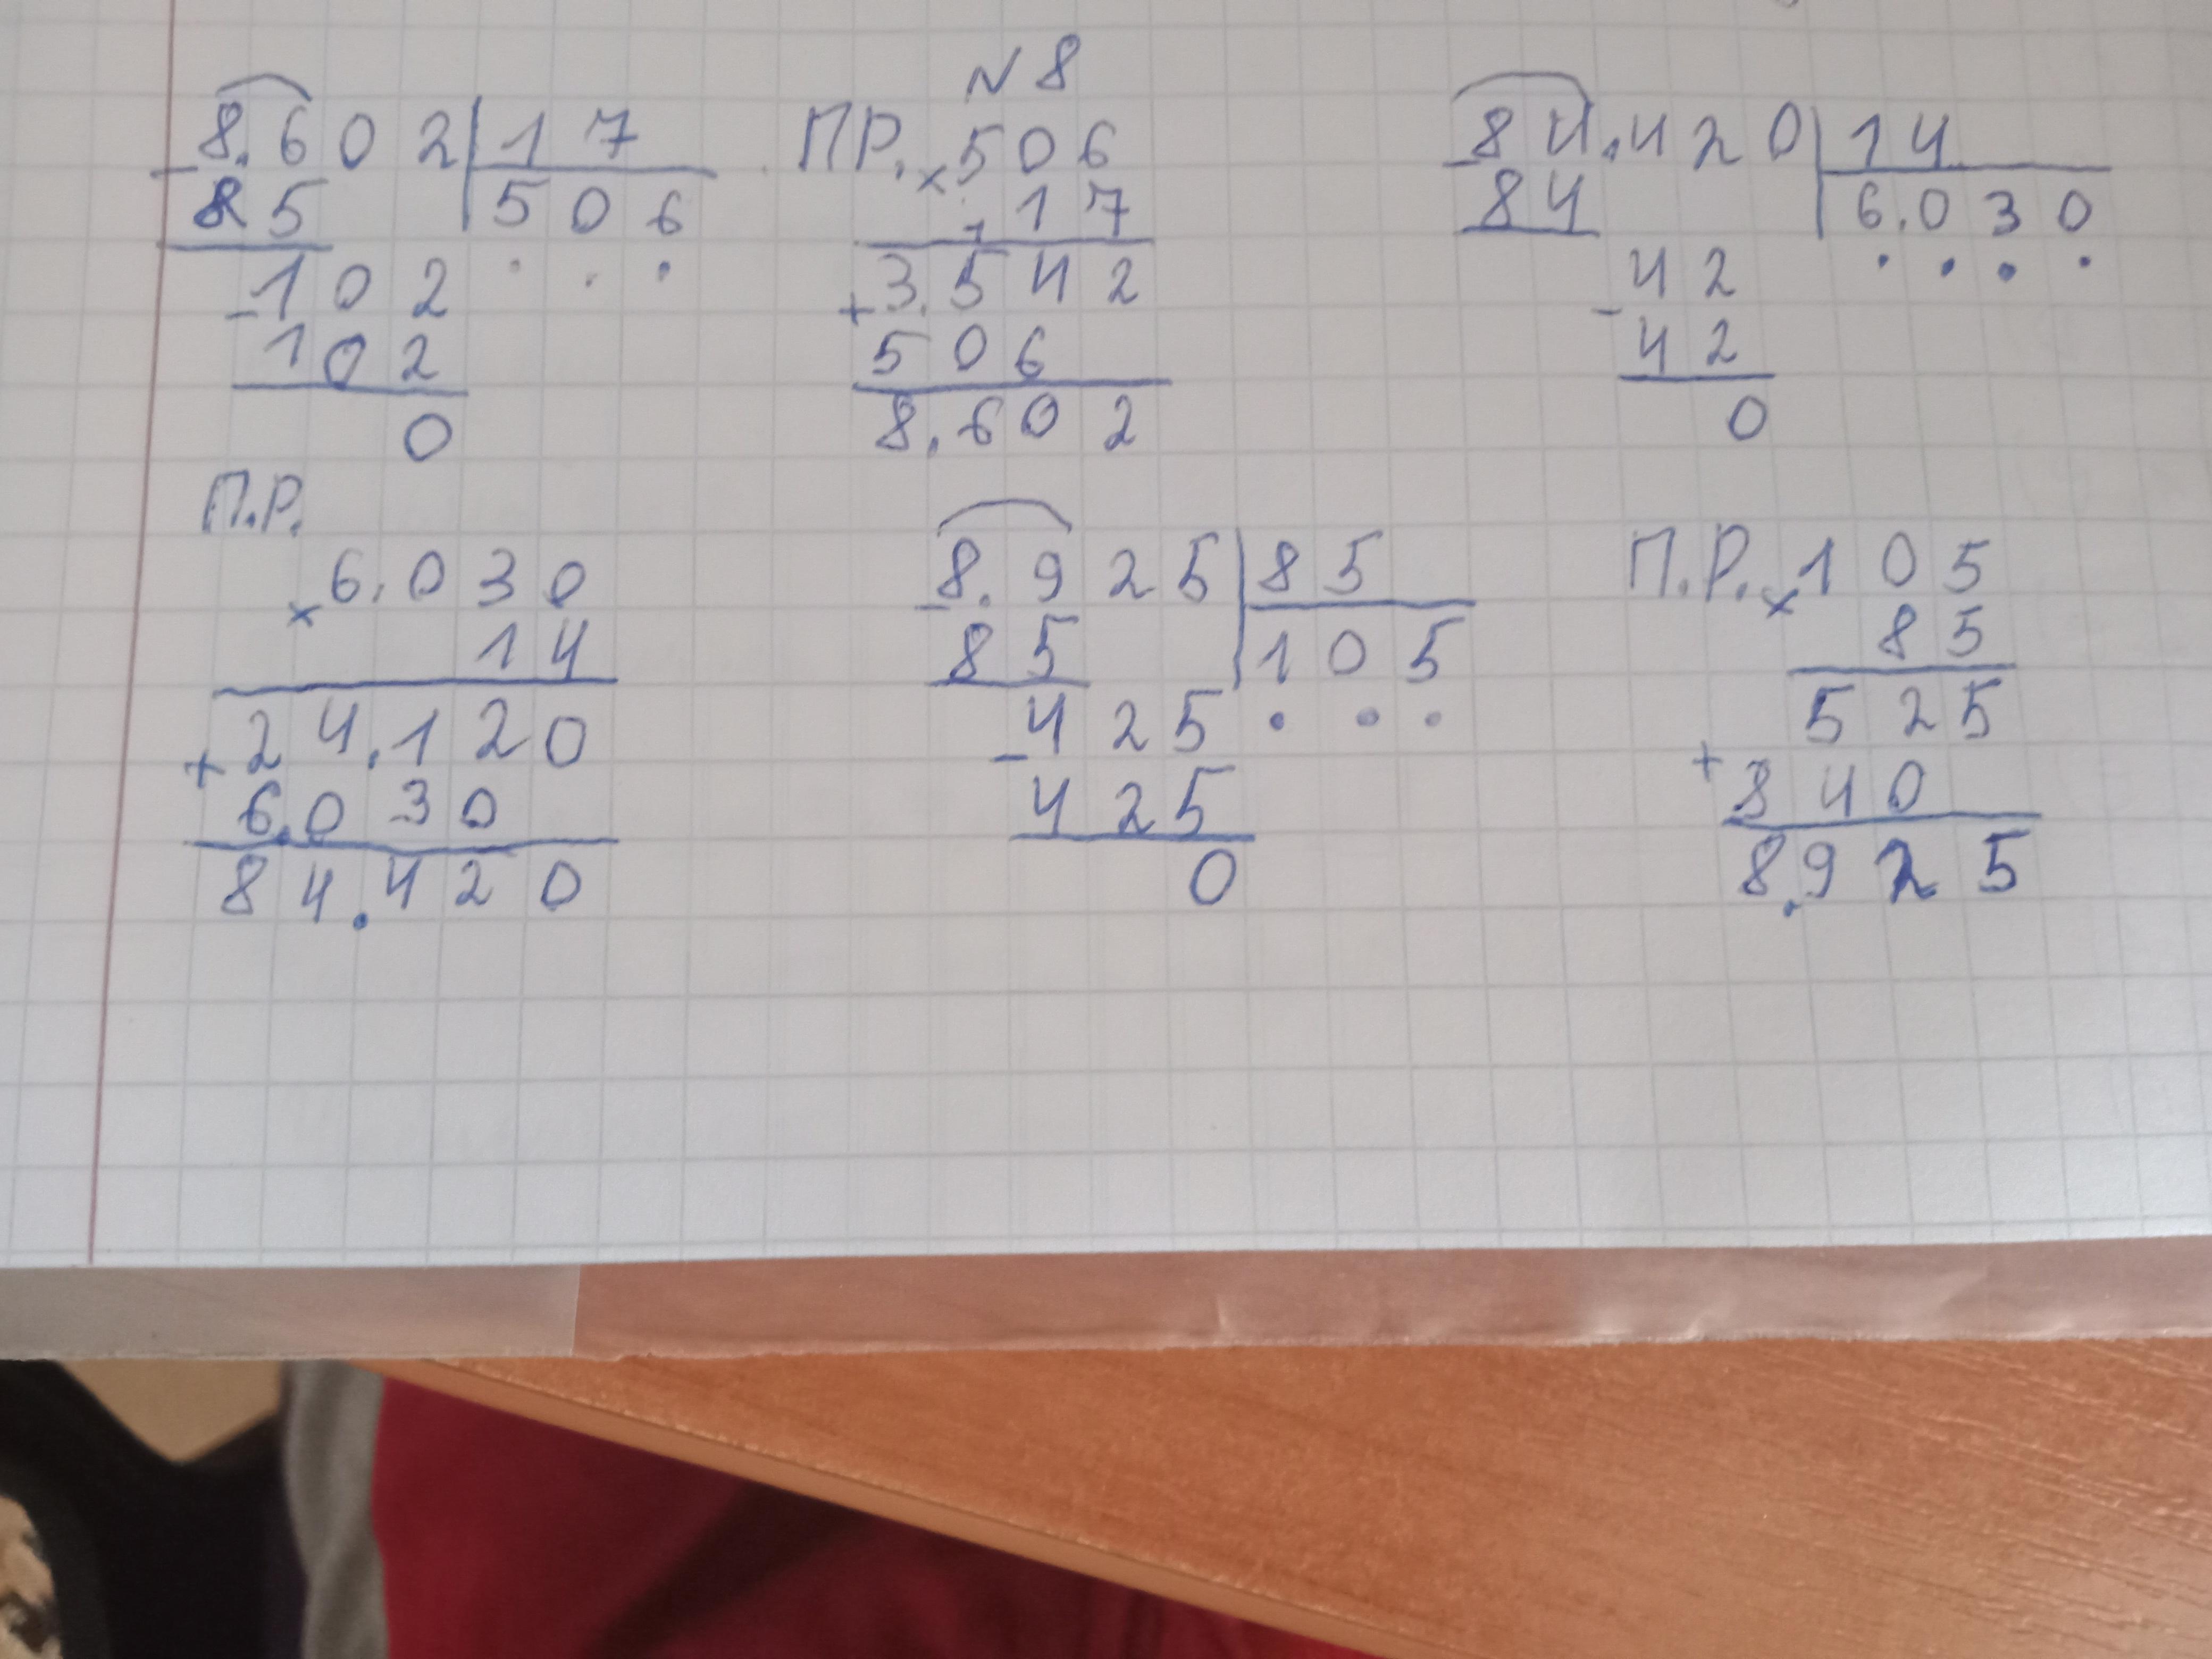 № 8
8.602 | 17
- 85 | 506
- 102
102
0
ПР. × 506
17
+ 3.542
506
8.602
84.420 | 14
- 84 | 6.030
- 42
42
0
П.Р.
× 6.030
14
+ 24.120
6.030
84.420
8.925 | 85
- 85 | 105
- 425
425
0
П.Р. × 105
85
+ 525
840
8.925